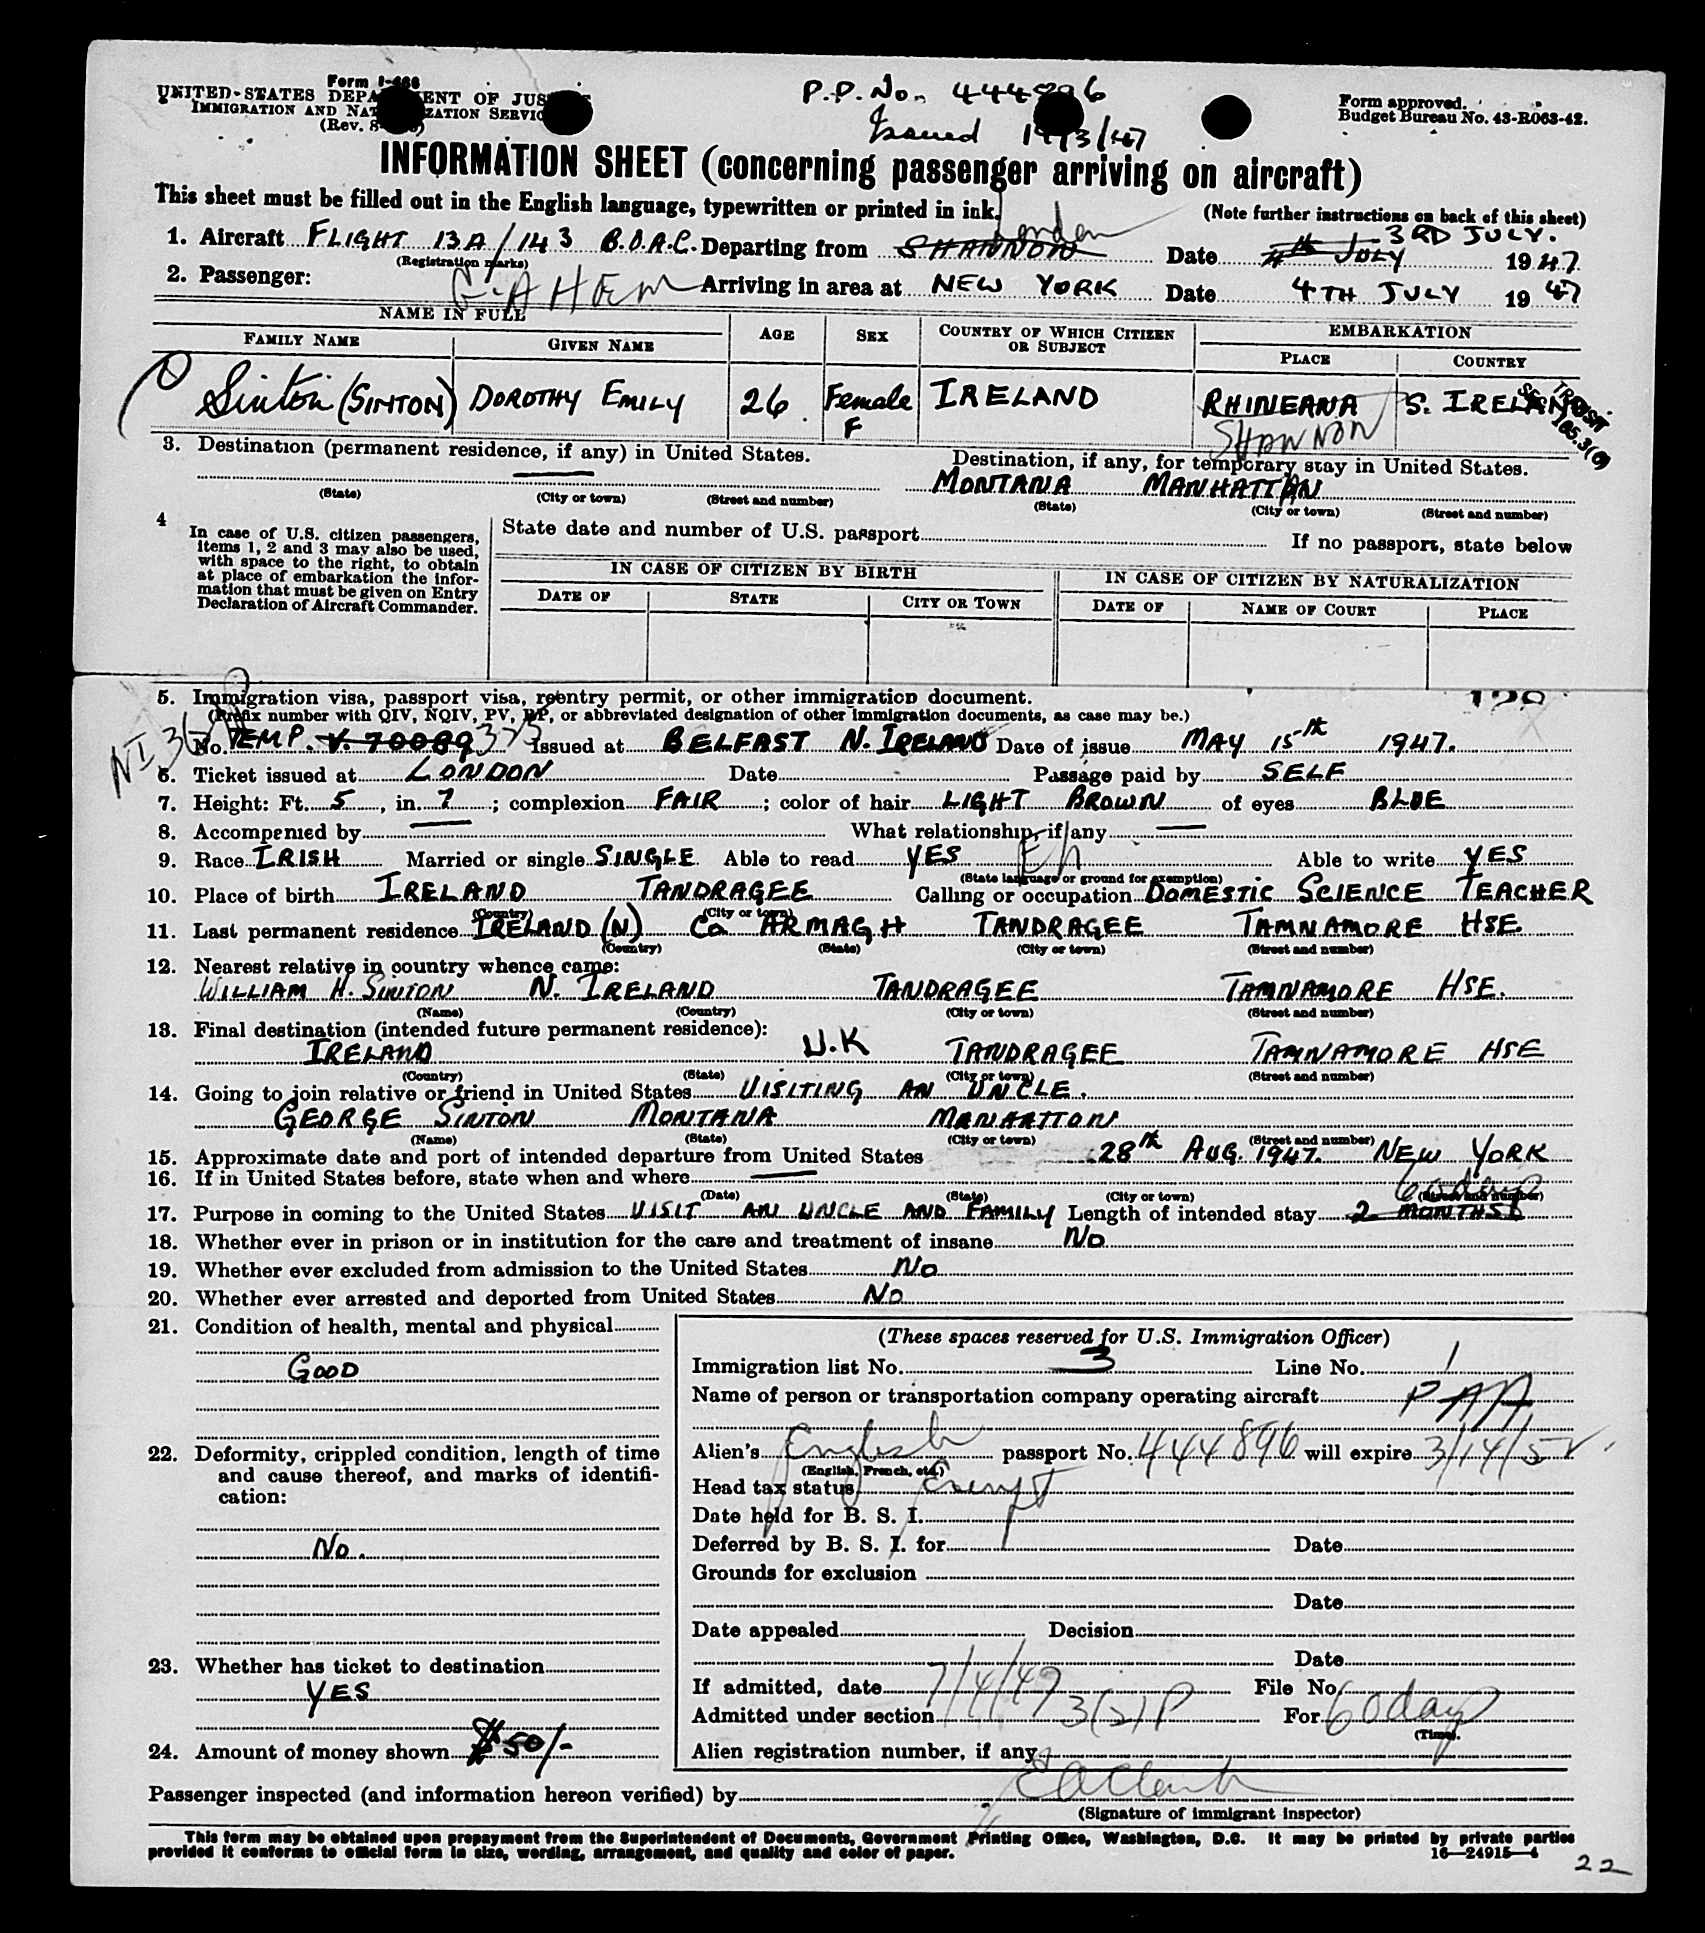 Form I-466
UNITED STATES DEPA ENT OF JUS
IMMIGRATION AND NAT ZATION SERVIC
(Rev. 8-
P.P. No. 444896
Issued 14/3/47
Form approved.
Budget Bureau No. 43-R063-42.
INFORMATION SHEET (concerning passenger arriving on aircraft)
This sheet must be filled out in the English language, typewritten or printed in ink.
(Note further instructions on back of this sheet)
London 3RD JULY.
1. Aircraft FLIGHT 13A/143 B.O.A.C. Departing from SHANNON Date 4th JULY 1947.
(Registration marks)
2. Passenger: Arriving in area at NEW YORK Date 4TH JULY 1947
NAME IN FULL AGE SEX COUNTRY OF WHICH CITIZEN OR SUBJECT EMBARKATION
FAMILY NAME GIVEN NAME PLACE COUNTRY
Sinton (SINTON) DOROTHY EMILY 26. Female IRELAND RHINEANA S. IRELAND
F SHANNON
TRANSIT
SEC. 165.3(c)
3. Destination (permanent residence, if any) in United States. Destination, if any, for temporary stay in United States.
— MONTANA MANHATTAN
(State) (City or town) (Street and number) (State) (City or town) (Street and number)
4
In case of U.S. citizen passengers, items 1, 2 and 3 may also be used, with space to the right, to obtain at place of embarkation the information that must be given on Entry Declaration of Aircraft Commander.
State date and number of U.S. passport If no passport, state below
IN CASE OF CITIZEN BY BIRTH IN CASE OF CITIZEN BY NATURALIZATION
DATE OF STATE CITY OR TOWN DATE OF NAME OF COURT PLACE
5. Immigration visa, passport visa, reentry permit, or other immigration document.
(Prefix number with QIV, NQIV, PV, RP, or abbreviated designation of other immigration documents, as case may be.)
No. TEMP. V. 70089 Issued at BELFAST N. IRELAND Date of issue MAY 15th 1947.
6. Ticket issued at LONDON Date Passage paid by SELF
7. Height: Ft. 5, in. 7; complexion FAIR; color of hair LIGHT BROWN of eyes BLUE
8. Accompanied by — What relationship, if any —
9. Race IRISH Married or single SINGLE Able to read YES Eng Able to write YES
(State language or ground for exemption)
10. Place of birth IRELAND TANDRAGEE Calling or occupation DOMESTIC SCIENCE TEACHER
(Country) (City or town)
11. Last permanent residence IRELAND (N) Co ARMAGH TANDRAGEE TAMNAMORE HSE.
(Country) (State) (City or town) (Street and number)
12. Nearest relative in country whence came:
WILLIAM H. SINTON N. IRELAND TANDRAGEE TAMNAMORE HSE.
(Name) (Country) (City or town) (Street and number)
13. Final destination (intended future permanent residence):
IRELAND U.K TANDRAGEE TAMNAMORE HSE
(Country) (State) (City or town) (Street and number)
14. Going to join relative or friend in United States VISITING AN UNCLE.
GEORGE SINTON MONTANA MANHATTON
(Name) (State) (City or town) (Street and number)
15. Approximate date and port of intended departure from United States 28th AUG. 1947. NEW YORK
16. If in United States before, state when and where —
(Date) (State) (City or town) (Street and number)
60 days
17. Purpose in coming to the United States VISIT AN UNCLE AND FAMILY Length of intended stay 2 MONTHS
18. Whether ever in prison or in institution for the care and treatment of insane No
19. Whether ever excluded from admission to the United States No
20. Whether ever arrested and deported from United States No
21. Condition of health, mental and physical
GOOD
22. Deformity, crippled condition, length of time and cause thereof, and marks of identification:
No.
23. Whether has ticket to destination
YES
24. Amount of money shown $50/-
(These spaces reserved for U.S. Immigration Officer)
Immigration list No. 3 Line No. 1
Name of person or transportation company operating aircraft PAA
Alien's English passport No. 444896 will expire 3/14/52
(English, French, etc.)
Head tax status Exempt
Date held for B. S. I.
Deferred by B. S. I. for Date
Grounds for exclusion
Date
Date appealed Decision
Date
If admitted, date 7/4/47 File No.
Admitted under section 3(2)P For 60 days
(Time).
Alien registration number, if any
Passenger inspected (and information hereon verified) by
(Signature of immigrant inspector)
This form may be obtained upon prepayment from the Superintendent of Documents, Government Printing Office, Washington, D.C. It may be printed by private parties
provided it conforms to official form in size, wording, arrangement, and quality and color of paper. 16—24915-4
22